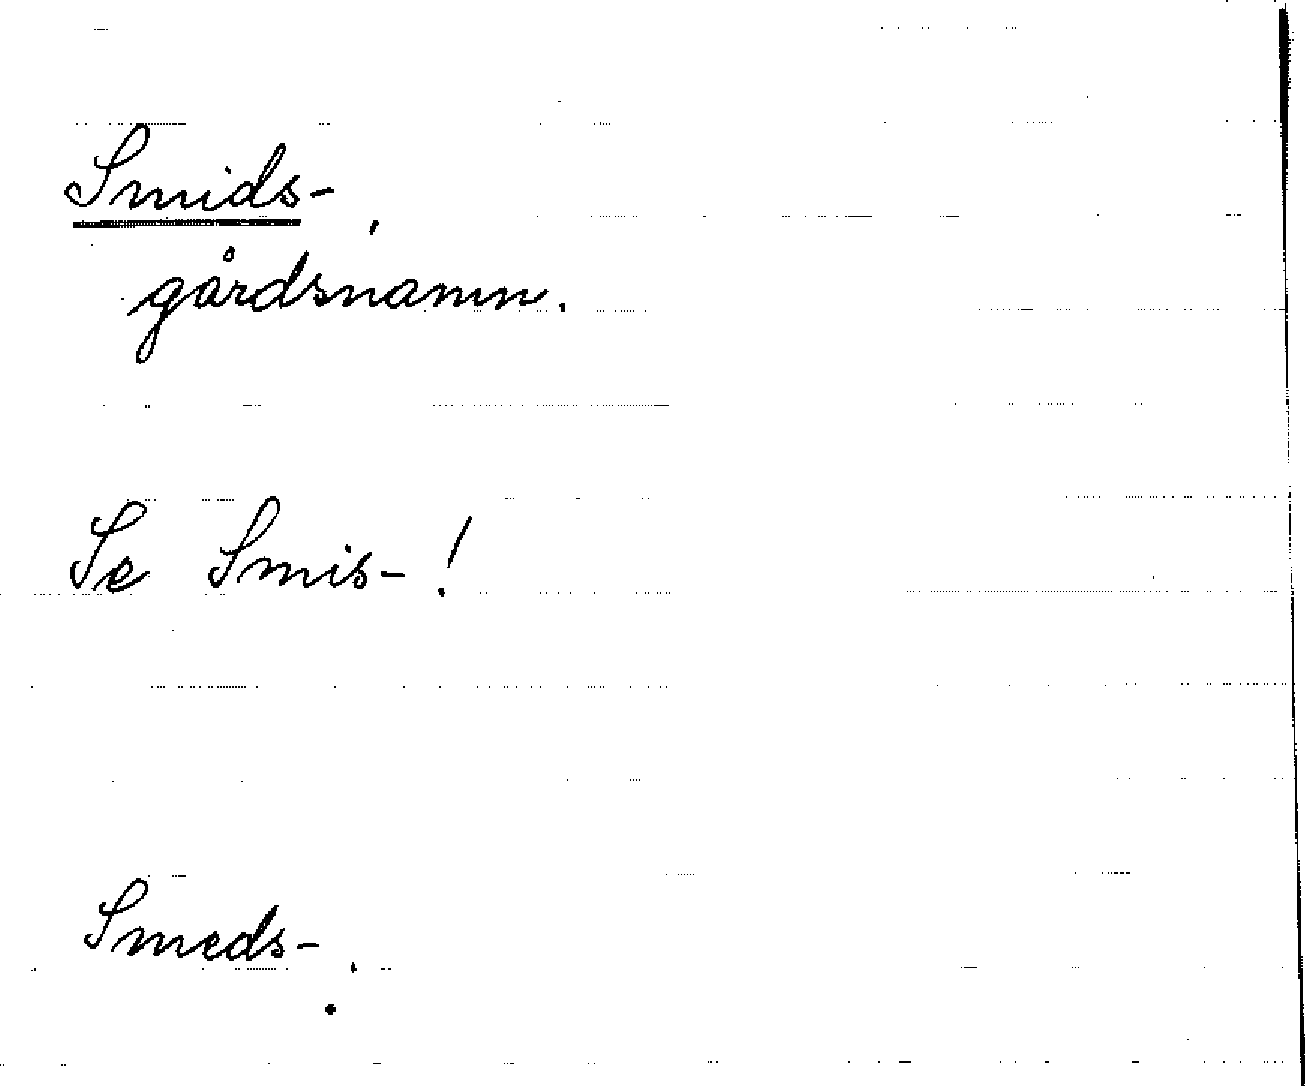 Smids- ,
gårdsnamn.
Se Smis- !
Smeds- .